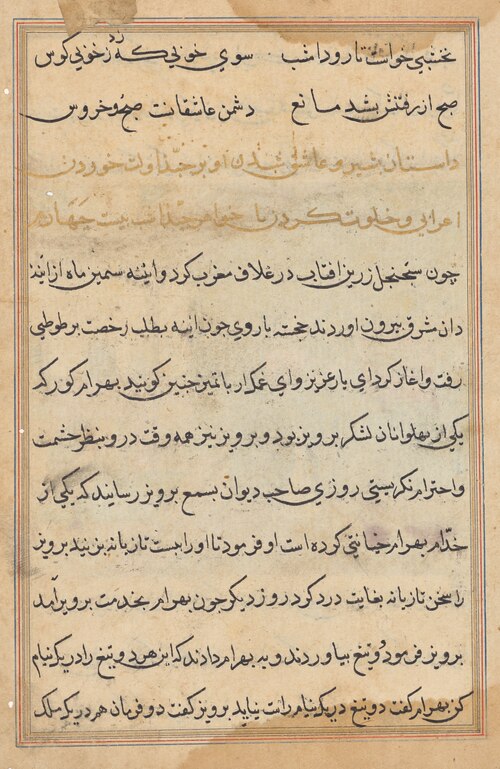 نخشبی خواست تا رود امشب سوی خوبی که زد ز خوبی کوس
صبح از رفتنش بشد مانع دشمن عاشقانت صبح و خروس
داستان بشیر و عاشق شدن او بر جندا و لت خوردن
اعرابی و خلوت کردن با خواهر جندا شب بیست چهارم
چون سجنجل زرین افتاب در غلاف مغرب کرد و ایینه سمین ماه از ایینه
دان مشرق بیرون اوردند خجسته با روی چون اینه بطلب رخصت بر طوطی
رفت و اغاز کرد ای یار عزیز و ای غمکسار با تمیز چنین کویند بهرام کور که
یکی از بهلوانان لشکر برویز بود و برویز نیز همه وقت درو بنظر حشمت
و احترام نکریستی روزی صاحب دیوان بسمع برویز رسانید که یکی از
خدام بهرام خیانتی کرده است او فرمود تا او را بیست تازیانه بزنید برویز
را سخن تازیانه بغایت درد کرد روز دیکر چون بهرام بخدمت برویز آمد
برویز فرمود دو تیغ بیاوردند و به بهرام دادند که این هر دو تیغ را در یک نیام
کن بهرام کفت دو تیغ در یک نیام راست نیاید برویز کفت دو فرمان هم در یک ملک